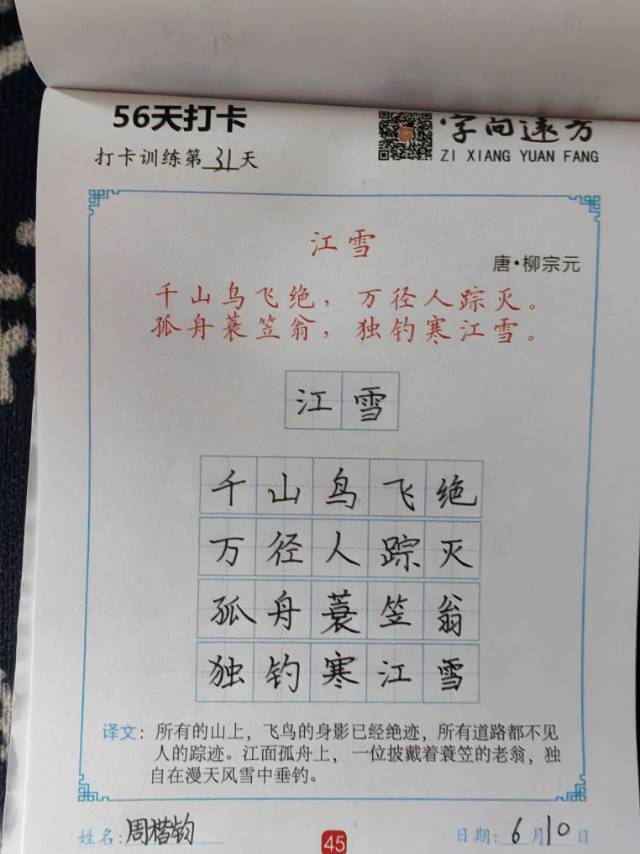 56天打卡
字向远方
打卡训练第31天
ZI XIANG YUAN FANG
江雪
唐·柳宗元
千山鸟飞绝，万径人踪灭。
孤舟蓑笠翁，独钓寒江雪。
江雪
千山鸟飞绝
万径人踪灭
孤舟蓑笠翁
独钓寒江雪
译文：所有的山上，飞鸟的身影已经绝迹，所有道路都不见
人的踪迹。江面孤舟上，一位披戴着蓑笠的老翁，独
自在漫天风雪中垂钓。
姓名：周楷钧
45
日期：6月10日